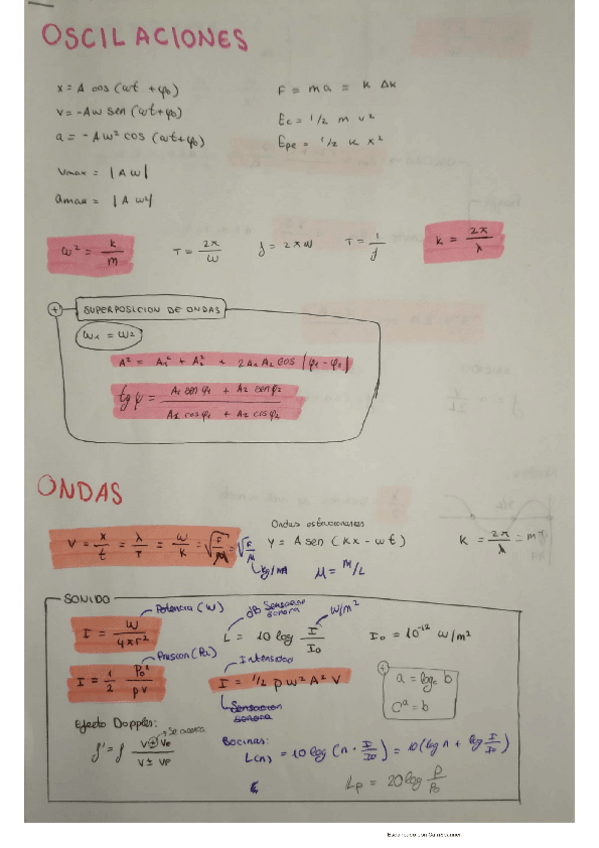 OSCILACIONES
x = A cos (ωt + φ₀)
v = -Aω sen (ωt + φ₀)
a = -Aω² cos (ωt + φ₀)
Vmax = |A ω|
amax = |A ω²|
F = ma = k Δx
Ec = 1/2 m v²
Epe = 1/2 k x²
ω² = k/m
T = 2π/ω
f = 2πω
T = 1/f
k = 2π/λ
+ SUPERPOSICION DE ONDAS
ω₁ = ω₂
A² = A₁² + A₂² + 2A₁A₂ cos |φ₁ - φ₂|
tg φ = A₁ sen φ₁ + A₂ sen φ₂ / A₁ cos φ₁ + A₂ cos φ₂
ONDAS
V = x/t = λ/T = ω/k = √F/μ = √F/μ
kg/m
Ondas estacionarias
y = A sen (kx - ωt)
μ = m/L
k = 2π/λ = m⁻¹
SONIDO
Potencia (W)
I = W / 4πr²
dB Sensacion sonora
W/m²
L = 10 log I/I₀
I₀ = 10⁻¹² W/m²
Presion (Pa)
I = 1/2 P₀²/ρv
Intensidad
I = 1/2 ρ ω² A² V
Sensacion sonora
+
a = log_c b
Cᵃ = b
Efecto Doppler:
Se acerca
f' = f V ± Ve / V ± VF
Bocinas:
L(n) = 10 log (n · I/I₀) = 10 (log n + log I/I₀)
E
Lp = 20 log P/P₀
Escaneado con CamScanner